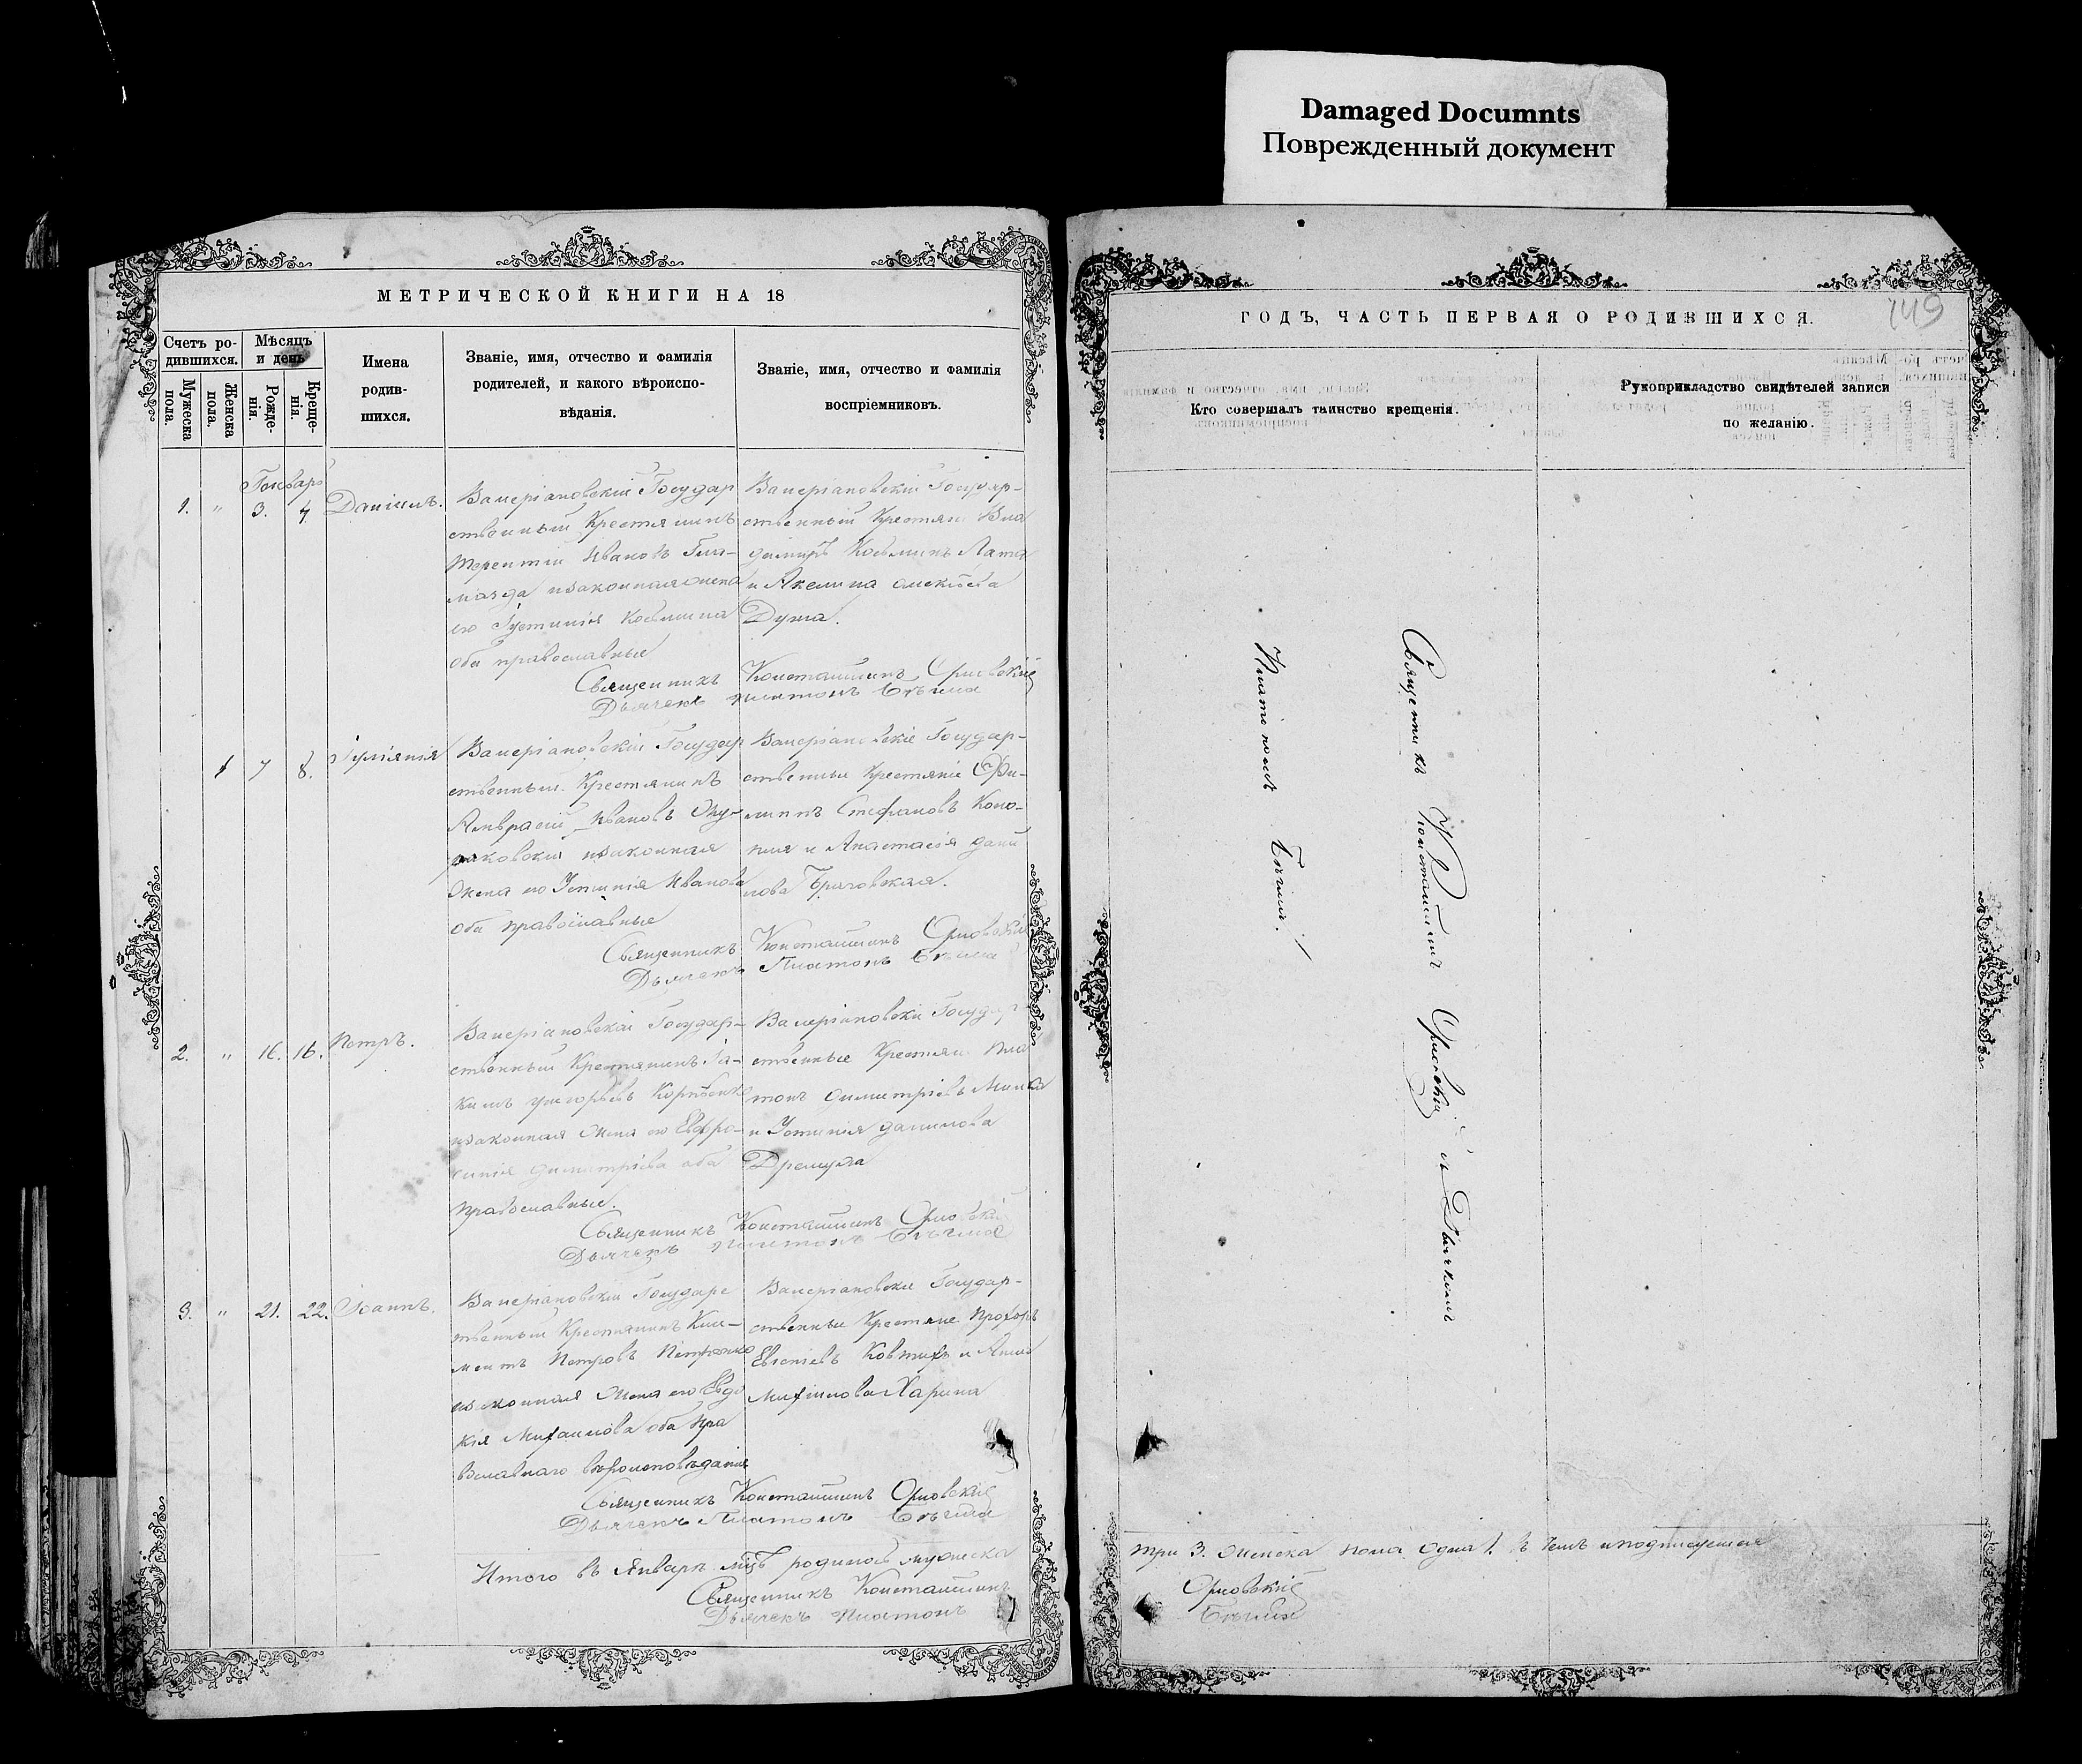 Damaged Documnts
Поврежденный документ
МЕТРИЧЕСКОЙ КНИГИ НА 18
Счетъ ро-
дившихся.
Мѣсяцъ
и день
Мужеска
пола.
Женска
пола.
Рожде-
нія.
Креще-
нія.
Имена
родив-
шихся.
Званіе, имя, отчество и фамилія
родителей, и какого вѣроиспо-
вѣданія.
Званіе, имя, отчество и фамилія
воспріемниковъ.
1. " 3. 4 Даніилъ.
Валеріановскій Государ
ственный Крестянинъ
Терентій Ивановъ
изаконная жена
его Іустинія Космина
оба православные
Валеріановскій Государ-
ственный Крестян Вла
димиръ Косминъ Лата
и Акелина алексѣева
Дума.
Священникъ Константинъ Орловскій
Дьячекъ Платонъ
1 7 8. Іуліянія
Валеріановскій Государ
ственный Крестянинъ
Амвросій Ивановъ
изаконная
Жена его Устинія Иванова
оба православные
Валеріановскіе Государ-
ственные Крестяніе Фи-
липпъ Стефановъ Коно-
и Анастасія дани
лова
Священникъ Константинъ Орловскій
Дьячекъ Платонъ
2. " 16. 16. Петръ.
Валеріановскій Государ-
ственный Крестянинъ Іа-
кимъ
изаконная Жена его Евфро-
синія Димитріева оба
православные.
Валеріановскіи Государ
ственные Крестяни Пла
тонъ Димитріевъ
и Устинія данилова
Дремура
Священникъ Константинъ Орловскій
Дьячекъ Платонъ
3. " 21. 22. Іоаннъ.
Валеріановскій Государс
твенный Крестянинъ Кли-
ментъ Петровъ
изаконная Жена его Евдо
кія Михаилова оба пра
вославнаго вѣроисповѣданія
Валеріановскіе Государ-
ственные Крестяне Прохоръ
Евгеніевъ Ковтухъ и Анна
Михаилова Харина
Священникъ Константинъ Орловскій
Дьячекъ Платонъ
Итого въ Январѣ мцѣ родилось мужеска
Священникъ Константинъ
Дьячекъ Платонъ
149
ГОДЪ, ЧАСТЬ ПЕРВАЯ О РОДИВШИХСЯ.
Кто совершалъ таинство крещенія.
Рукоприкладство свидѣтелей записи
по желанію.
Священникъ Константинъ Орловскій и Дьячкомъ
Платономъ
три 3. Женска пола одна 1. в чемъ и подписуемся
Орловскій